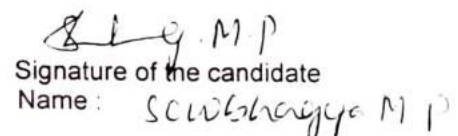 M.P
Signature of the candidate
Name : Sowbhagya M P